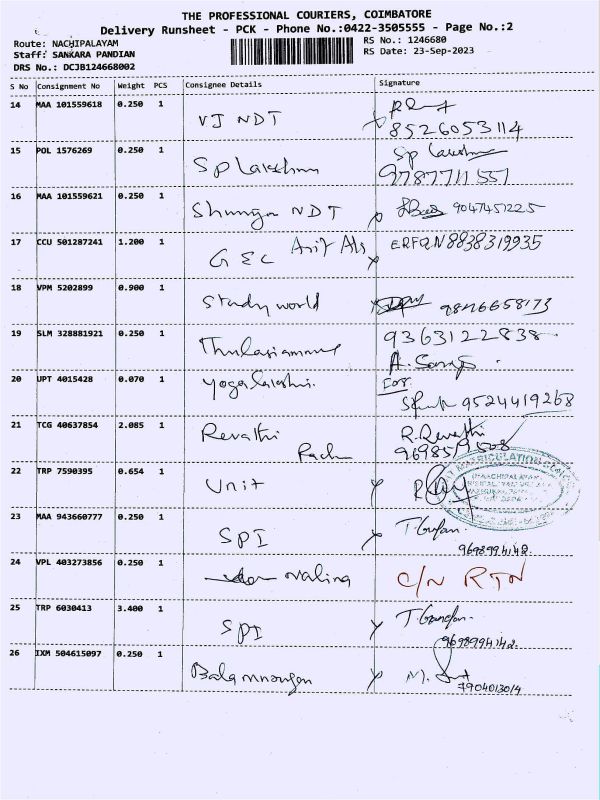 THE PROFESSIONAL COURIERS, COIMBATORE
Delivery Runsheet - PCK - Phone No.:0422-3505555 - Page No.:2
Route: NACHIPALAYAM
Staff: SANKARA PANDIAN
DRS No.: DCJB124668002
RS No.: 1246680
RS Date: 23-Sep-2023
S No Consignment No Weight PCS Consignee Details Signature
14 MAA 101559618 0.250 1 VJ NDT
8526053114
15 POL 1576269 0.250 1 Sp Lakshmi Sp
9787711551
16 MAA 101559621 0.250 1 NDT 9047451225
17 CCU 501287241 1.200 1 GEC Asif Als ERFAN 8838319935
18 VPM 5202899 0.900 1 Study world
19 SLM 328881921 0.250 1 9363122838
A.
20 UPT 4015428 0.070 1 Yogalakshmi. For
9524419268
21 TCG 40637854 2.085 1 Revathi R. Revathi
22 TRP 7590395 0.654 1 Unit
MATRICULATION
23 MAA 943660777 0.250 1 SPI T.
9698994142
24 VPL 403273856 0.250 1 Nalina C/N RTN
25 TRP 6030413 3.400 1 SPI T.
9698994142
26 IXM 504615097 0.250 1 M.
7904013014